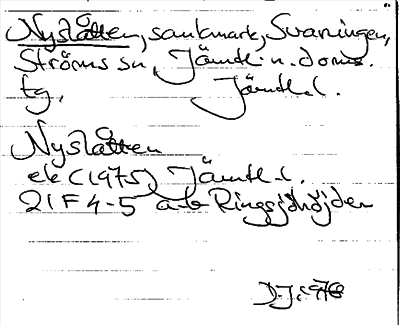 Nyslåtten, sankmark, Svaningen,
Ströms sn, Jämtl. n. doms.
tg, Jämtl. l.
Nyslåtten
ek (1975) Jämtl. l.
21F 4-5 a-b Ringsjöhöjden
D.J. 1978